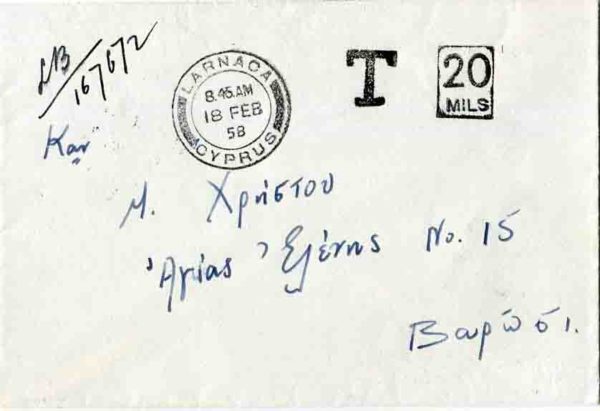 LB/167672
LARNACA
8.45.AM
18 FEB
58
CYPRUS
T
20
MILS
Καν
Μ. Χρήστου
Ἁγίας Ἑλένης No. 15
Βαρώσι.